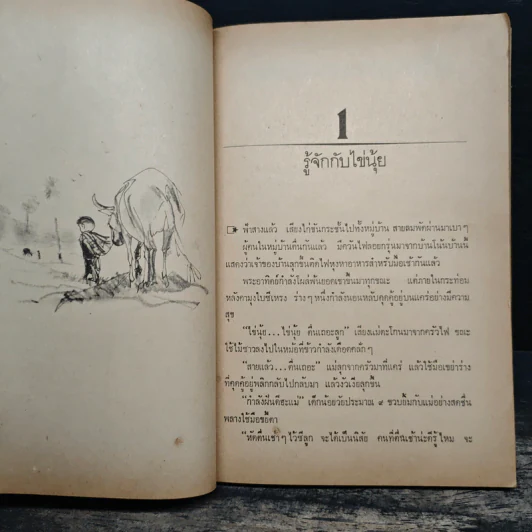 1
รู้จักกับไข่นุ้ย
ฟ้าสางแล้ว เสียงไก่ขันกระชั้นไปทั้งหมู่บ้าน สายลมพัดผ่านมาเบาๆ
ผู้คนในหมู่บ้านตื่นกันแล้ว มีควันไฟลอยกรุ่นมาจากบ้านโน้นบ้านนี้
แสดงว่าเจ้าของบ้านลุกขึ้นติดไฟหุงหาอาหารสำหรับมื้อเช้ากันแล้ว
พระอาทิตย์กำลังโผล่พ้นยอดเขาขึ้นมาทุกขณะ แต่ภายในกระท่อม
หลังคามุงใบซีเหรง ร่างๆ หนึ่งกำลังนอนหลับคุดคู้อยู่บนแคร่อย่างมีความ
สุข
"ไข่นุ้ย...ไข่นุ้ย ตื่นเถอะลูก" เสียงแม่ตะโกนมาจากครัวไฟ ขณะ
ใช้ไม้ซาวลงไปในหม้อที่ข้าวกำลังเดือดคลักๆ
"สายแล้ว...ตื่นเถอะ" แม่ลุกจากครัวมาที่แคร่ แล้วใช้มือเขย่าร่าง
ที่คุดคู้อยู่พลิกกลับไปกลับมา แล้วงัวเงียลุกขึ้น
"กำลังฝันดีฮะแม่" เด็กน้อยวัยประมาณ ๙ ขวบยิ้มกับแม่อย่างสดชื่น
พลางใช้มือขยี้ตา
"หัดตื่นเช้าๆ ไว้ซีลูก จะได้เป็นนิสัย คนที่ตื่นเช้าน่ะดีรู้ไหม จะ